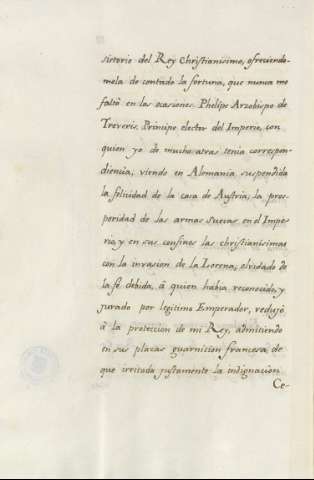 sistorio del Rey Christianisimo, ofreciendo-
mela de contado la fortuna, que nunca me
faltò en las ocasiones. Phelipe Arzobispo de
Treveris, Principe elector del Imperio, con
quien yo de mucho atras tenia correspon-
diencia, viendo en Alemania suspendida
la felicidad de la casa de Austria; la pros-
peridad de las armas suecas en el Impe-
rio, y en sus confines las christianisimas
con la invasion de la Lorena; olvidado de
la fé debida, à quien habia reconocido, y
jurado por legitimo Emperador, redujó
à la proteccion de mi Rey, admitiendo
en sus plazas guarnicion francesa de
que irritada justamente la indignacion
Ce-